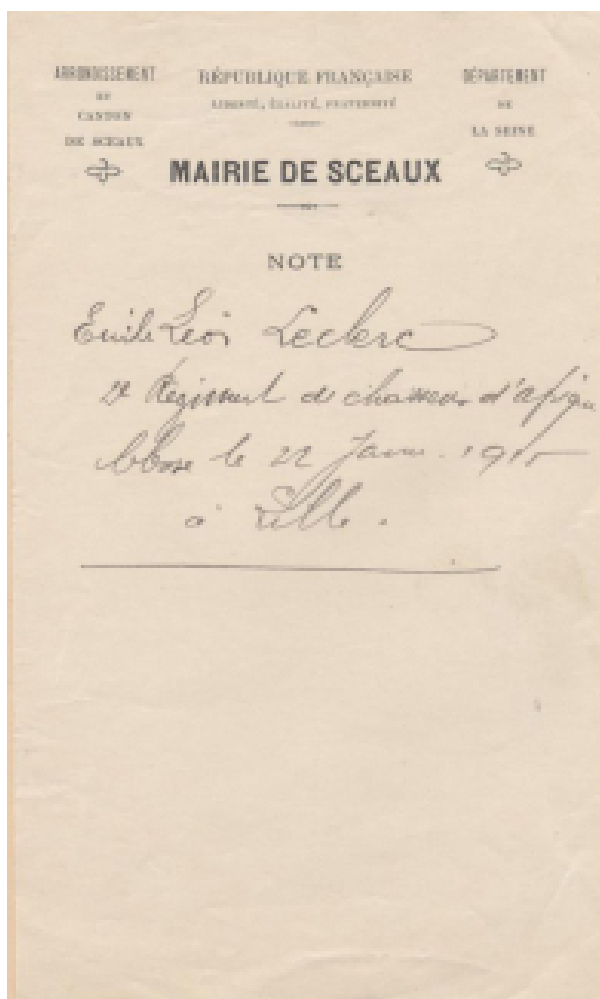 ARRONDISSEMENT
ET
CANTON
DE SCEAUX
RÉPUBLIQUE FRANÇAISE
LIBERTÉ, ÉGALITÉ, FRATERNITÉ
DÉPARTEMENT
DE
LA SEINE
MAIRIE DE SCEAUX
NOTE
Emile Léon Leclerc
Régiment de chasseurs d'afrique
le 22 Janv. 1915
à Lille.